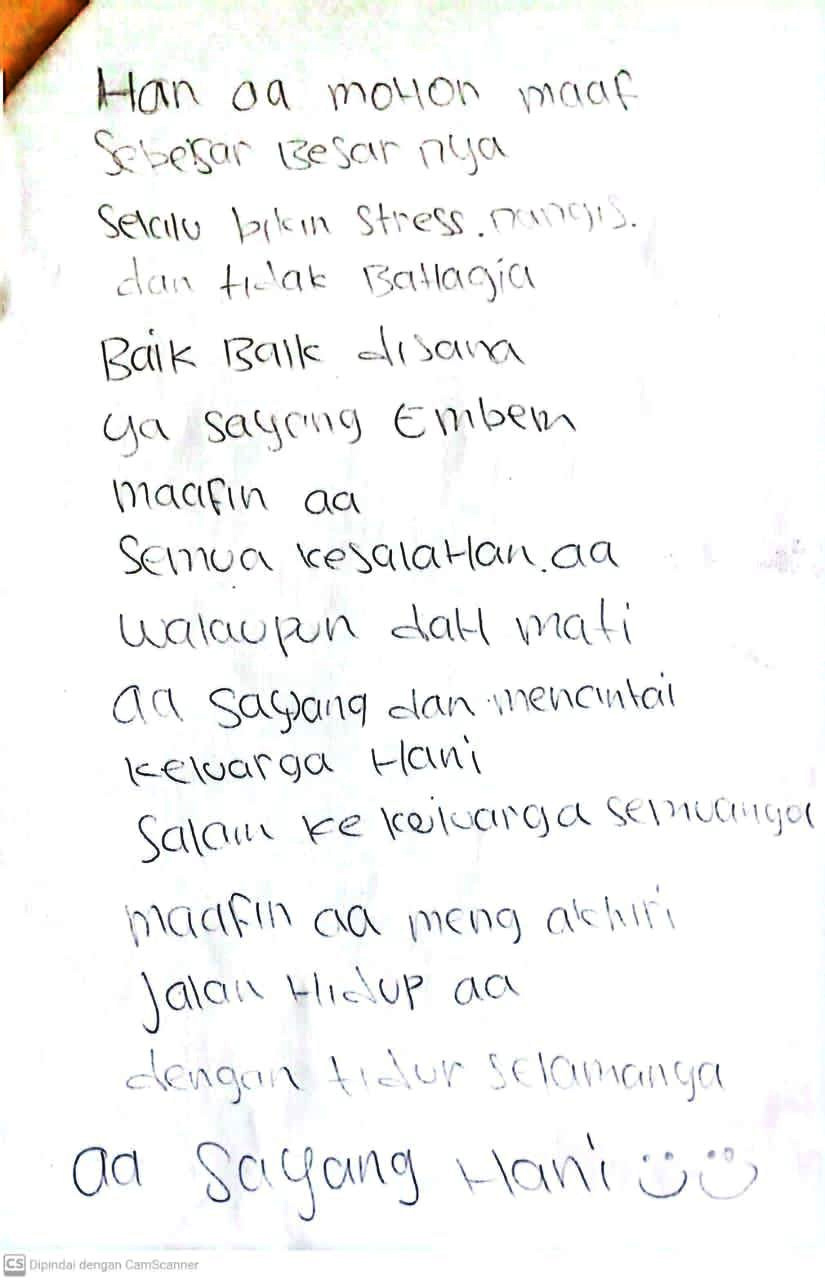 Han aa mohon maaf
Sebesar Besar nya
Selalu bikin stress. nangis.
dan tidak Bahagia
Baik Baik disana
ya sayang Embem
maafin aa
Semua kesalahan. aa
walaupun dah mati
aa sayang dan mencintai
keluarga Hani
Salam ke keluarga semuanya
maafin aa meng akhiri
Jalan Hidup aa
dengan tidur selamanya
aa Sayang Hani
CS Dipindai dengan CamScanner